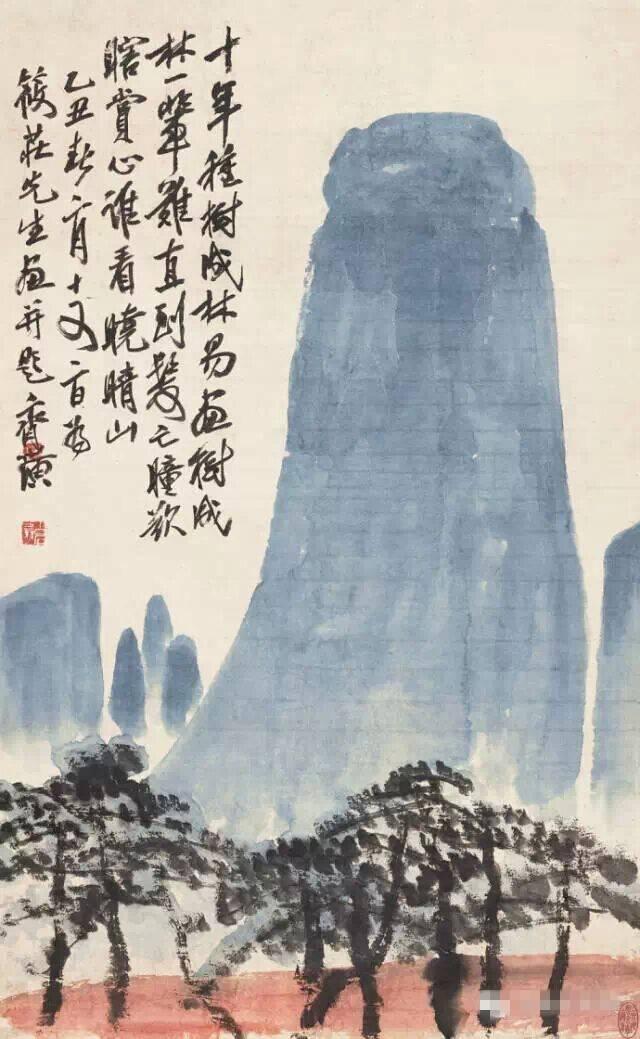 十年種樹成林易画樹成
林一輩難直到髮亡瞳欲
瞎賞心誰看曉晴山
乙丑春二月十又二日為
筱莊先生画并題齊璜